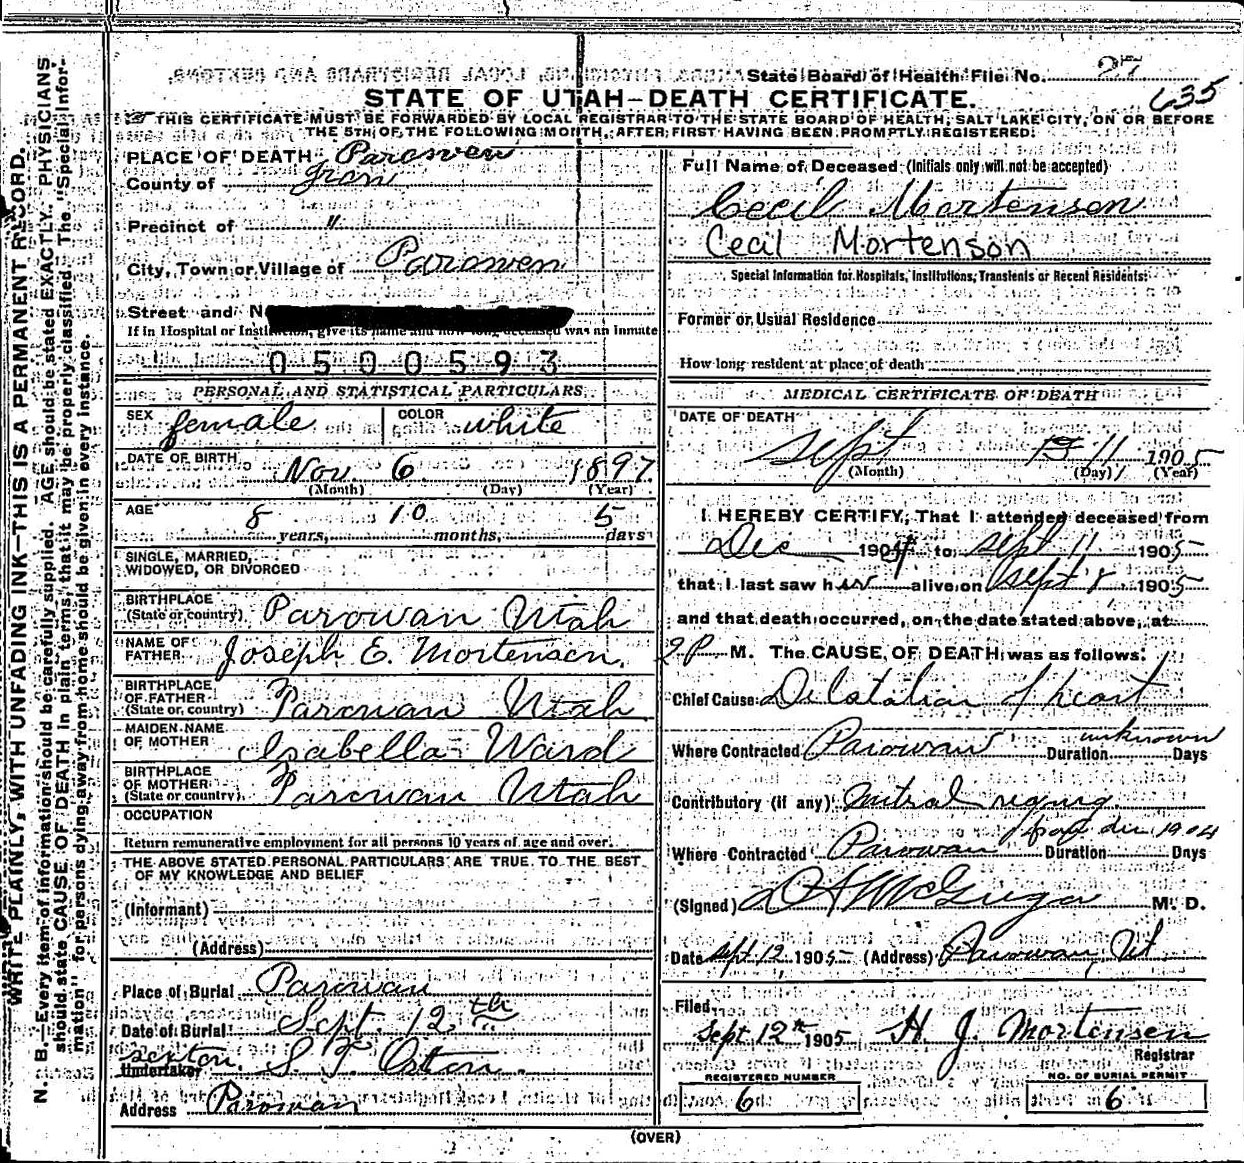 State Board of Health File No. 27
635
STATE OF UTAH—DEATH CERTIFICATE.
THIS CERTIFICATE MUST BE FORWARDED BY LOCAL REGISTRAR TO THE STATE BOARD OF HEALTH, SALT LAKE CITY, ON OR BEFORE
THE 5TH OF THE FOLLOWING MONTH, AFTER FIRST HAVING BEEN PROMPTLY REGISTERED.
WRITE PLAINLY, WITH UNFADING INK—THIS IS A PERMANENT RECORD.
N. B.—Every item of information should be carefully supplied. AGE should be stated EXACTLY. PHYSICIANS
should state CAUSE OF DEATH in plain terms, that it may be properly classified. The "Special Infor-
mation" for persons dying away from home should be given in every instance.
PLACE OF DEATH Parowen
County of Iron
Precinct of "
City, Town or Village of Parowen
Street and N
If in Hospital or Institution, give its name and how long deceased was an inmate
0500593
PERSONAL AND STATISTICAL PARTICULARS
SEX female COLOR white
DATE OF BIRTH Nov. 6 1897
(Month) (Day) (Year)
AGE 8 years, 10 months, 5 days
SINGLE, MARRIED,
WIDOWED, OR DIVORCED
BIRTHPLACE
(State or country) Parowan Utah
NAME OF
FATHER Joseph E. Mortensen.
BIRTHPLACE
OF FATHER
(State or country) Parowan Utah
MAIDEN NAME
OF MOTHER Isabella Ward
BIRTHPLACE
OF MOTHER
(State or country) Parowan Utah
OCCUPATION
Return remunerative employment for all persons 10 years of age and over.
THE ABOVE STATED PERSONAL PARTICULARS ARE TRUE TO THE BEST
OF MY KNOWLEDGE AND BELIEF
(Informant)
(Address)
Place of Burial Parowan
Date of Burial Sept. 12th
sexton
Undertaker S. T. Orton.
Address Parowan
Full Name of Deceased (Initials only will not be accepted)
Cecil Mortenson
Cecil Mortenson
Special Information for Hospitals, Institutions, Transients or Recent Residents:
Former or Usual Residence
How long resident at place of death
MEDICAL CERTIFICATE OF DEATH
DATE OF DEATH
Sept 11 1905
(Month) (Day) (Year)
I HEREBY CERTIFY, That I attended deceased from
Dec 1904 to Sept 11 1905
that I last saw her alive on Sept 8 1905
and that death occurred, on the date stated above, at
2 P M. The CAUSE OF DEATH was as follows:
Chief Cause Dilatation of heart
Where Contracted Parowan Duration unknown Days
Contributory (if any) mitral regurg.
Where Contracted Parowan Duration from dec 1904 Days
(Signed) McGregor M. D.
Date Sept 12 1905 (Address) Parowan, Ut
Filed
Sept 12th 1905 H. J. Mortensen
Registrar
REGISTERED NUMBER
6
NO. OF BURIAL PERMIT
6
(OVER)